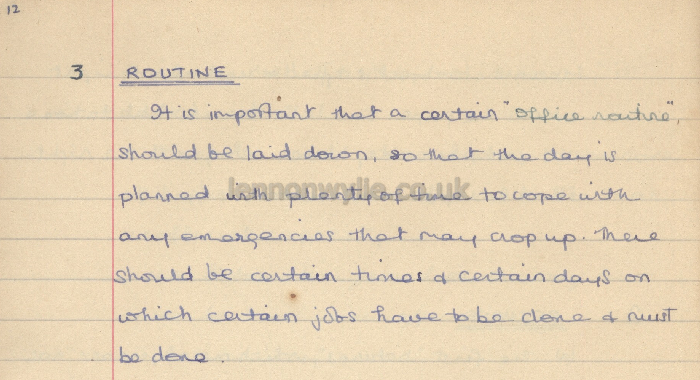 12
3 ROUTINE
It is important that a certain "office routine",
should be laid down, so that the day is
planned with plenty of time to cope with
lennonwylie.co.uk
any emergencies that may crop up. There
should be certain times & certain days on
which certain jobs have to be done & must
be done.